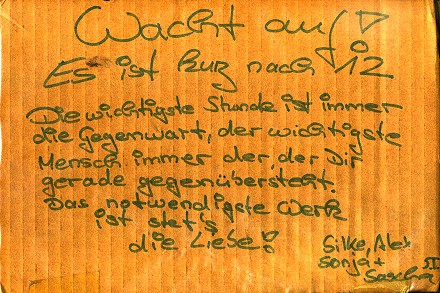 Wacht auf!
Es ist kurz nach 12
Die wichtigste Stunde ist immer
die Gegenwart, der wichtigste
Mensch immer der, der Dir
gerade gegenübersteht.
Das notwendigste Werk
ist stet's
die Liebe!
Silke, Alex
Sonja +
Sascha